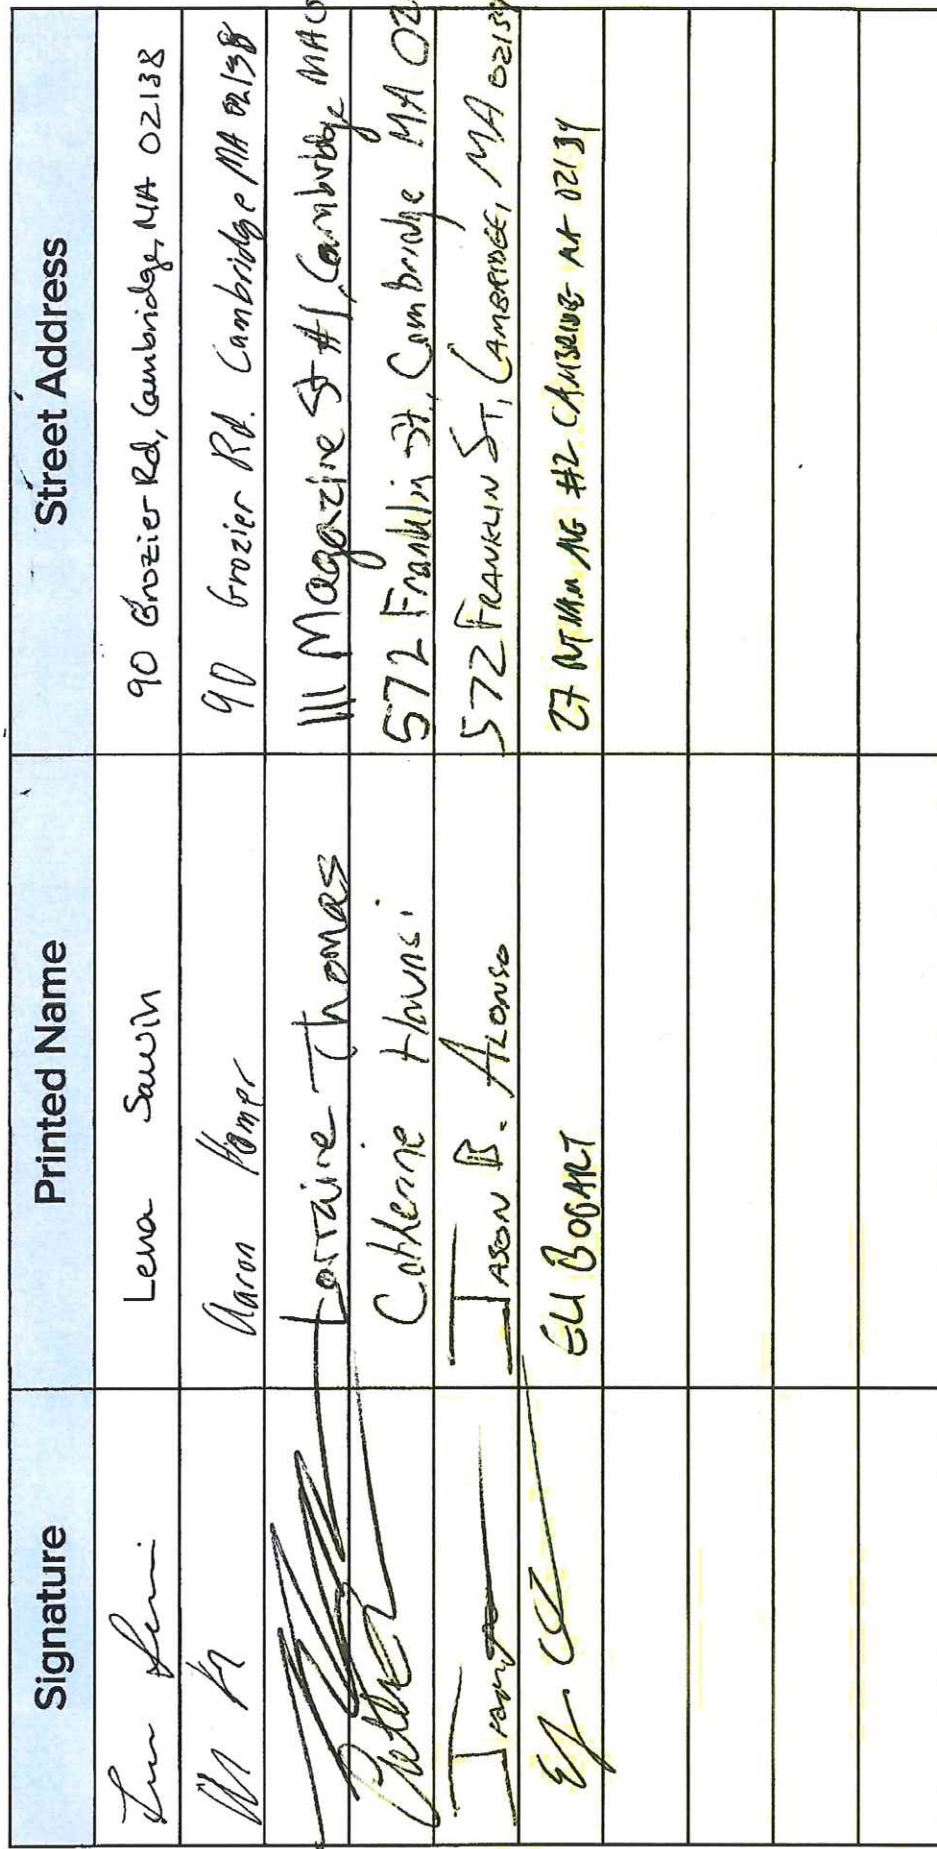 Signature Printed Name Street Address
Lena Sawin 90 Grozier Rd, Cambridge, MA 02138
Aaron 90 Grozier Rd. Cambridge MA 02138
Lorraine Thomas 111 Magazine St #1, Cambridge MA 0
Catherine 572 Franklin St., Cambridge MA 02
JASON B. ALONSO 572 FRANKLIN ST, CAMBRIDGE, MA 02139
ELI BOGART 27 #2 CAMBRIDGE MA 02139